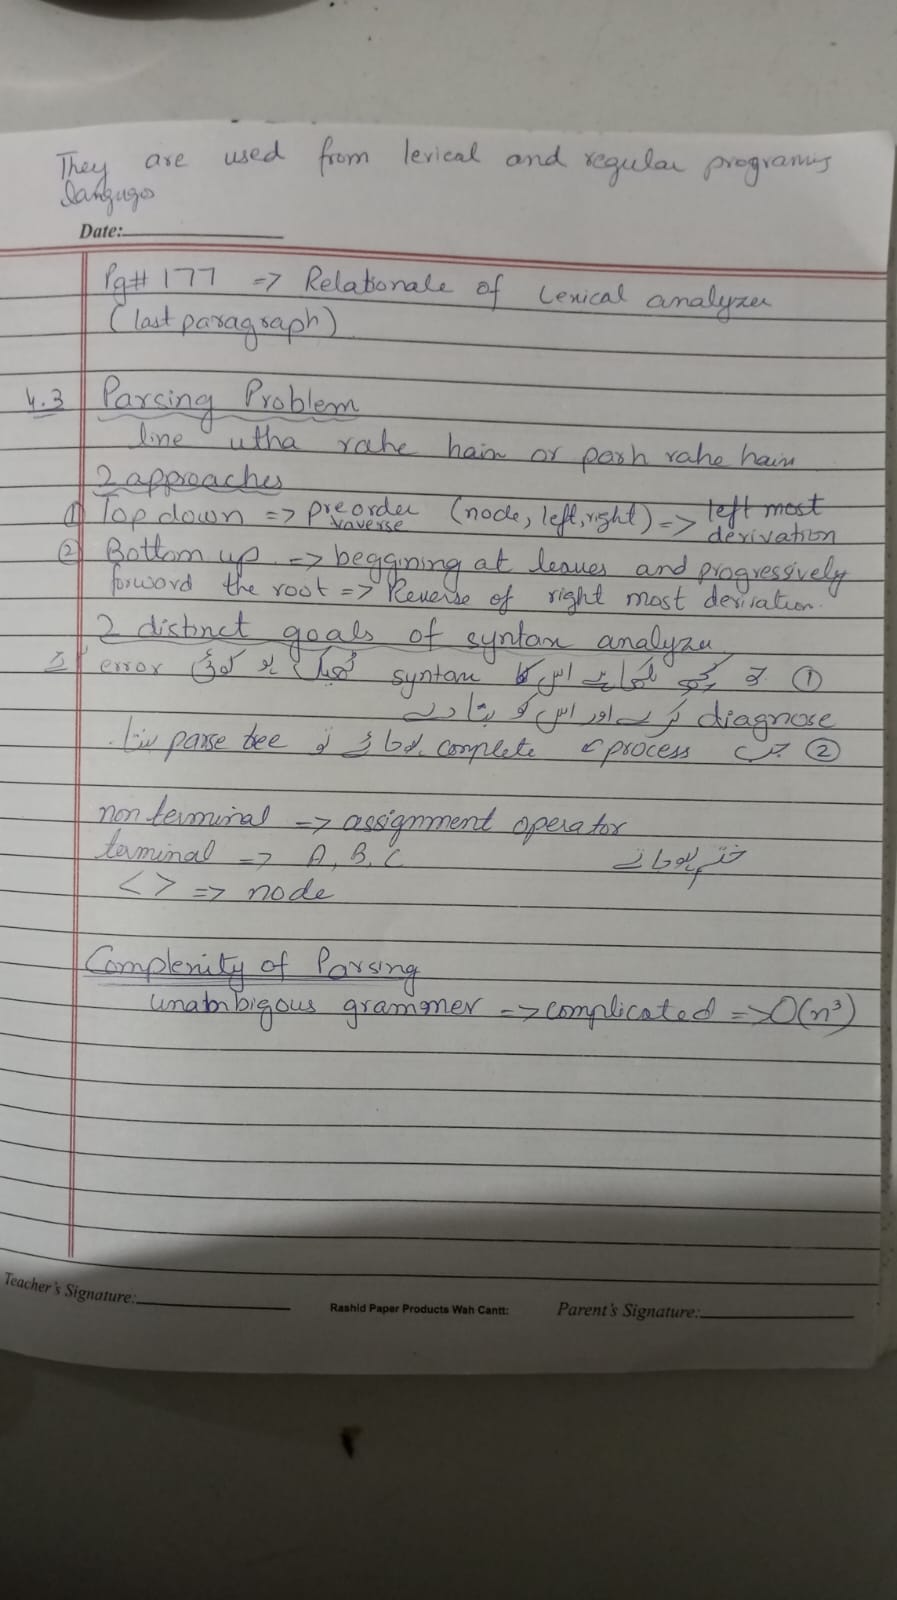 They are used from lexical and regular programing
languge
Date:
Pg# 177 => Relationale of Lexical analyzer
(last paragraph)
4.3 Parsing Problem
line utha rahe hain or parh rahe hain
2 approaches
① Top down => preorder traverse (node, left, right) => left most derivation
② Bottom up => beggining at leaves and progressively
forword the root => Reverse of right most derivation.
2 distinct goals of syntax analyzer
① جو بھی لکھا ہے اس کا syntax ٹھیک ہو کوئی error
diagnose کرے اور اس کو بتا دے
② جب process complete ہو جائے تو parse tree بنتا.
non terminal => assignment operator
terminal => A, B, C ختم ہو جائے
< > => node
Complexity of Parsing
unabnbigous grammer => complicated => O(n³)
Teacher's Signature:
Rashid Paper Products Wah Cantt:
Parent's Signature: